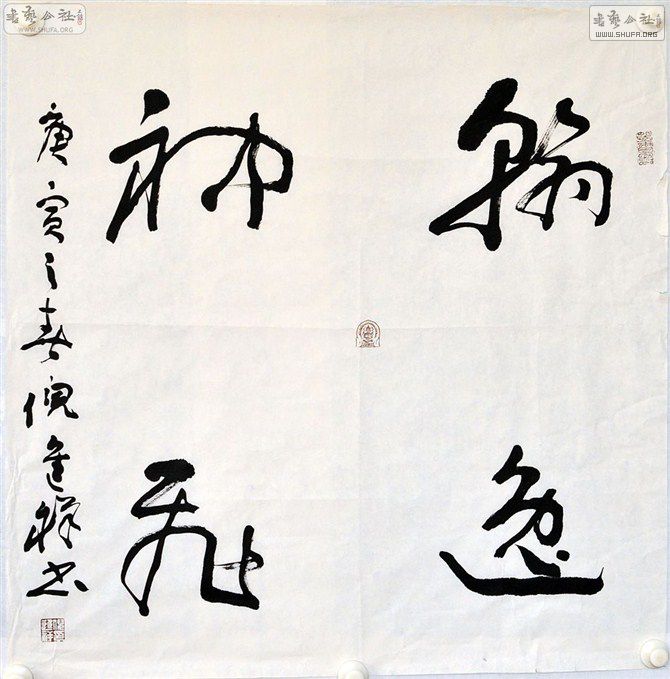 書藝公社
WWW.SHUFA.ORG
書藝公社
WWW.SHUFA.ORG
翰逸
神飛
庚寅之春倪進祥书